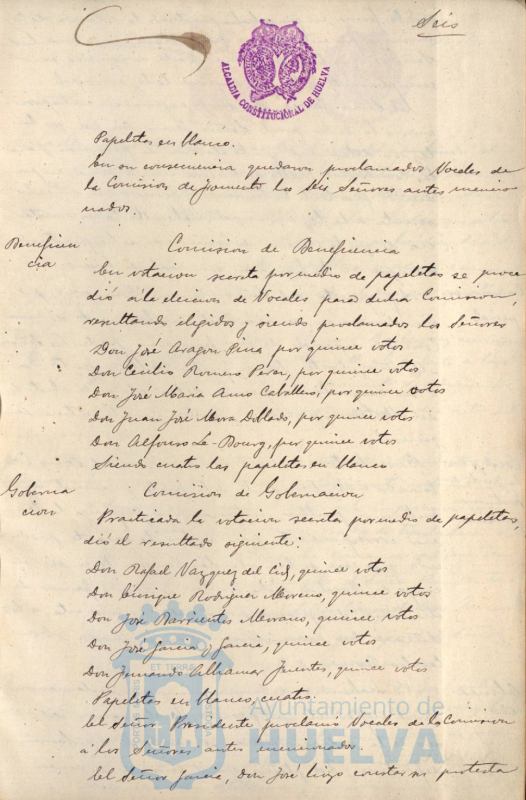 Seis
ALCALDIA CONSTITUCIONAL DE HUELVA
Papeletas en blanco.
En su consecuencia quedaron proclamados Vocales de
la Comision de Fomento los seis Señores antes mencio
nados.
Beneficen
cia
Comision de Beneficencia
En votacion secreta por medio de papeletas se proce
dió á la eleccion de Vocales para dicha Comision,
resultando elegidos y siendo proclamados los Señores
Don José Aragon Pina por quince votos
Don Cecilio Romero Perez, por quince votos
Don José Maria Amo Caballero, por quince votos
Don Juan José Mora Doblado, por quince votos
Don Alfonso Le-Bourg, por quince votos
Siendo cuatro las papeletas en blanco
Goberna
cion
Comision de Gobernacion
Practicada la votacion secreta por medio de papeletas,
dió el resultado siguiente:
Don Rafael Vazquez del Cid, quince votos
Don Enrique Rodriguez Moreno, quince votos
Don José Barrientos Moreno, quince votos
Don José Garcia y Garcia, quince votos
Don Fernando Alhamar Fuentes, quince votos
Papeletas en blanco, cuatro.
El Señor Presidente proclamó Vocales de la Comision
á los Señores antes mencionados.
El Señor Garcia, don José hizo constar su protesta
Ayuntamiento de
HUELVA